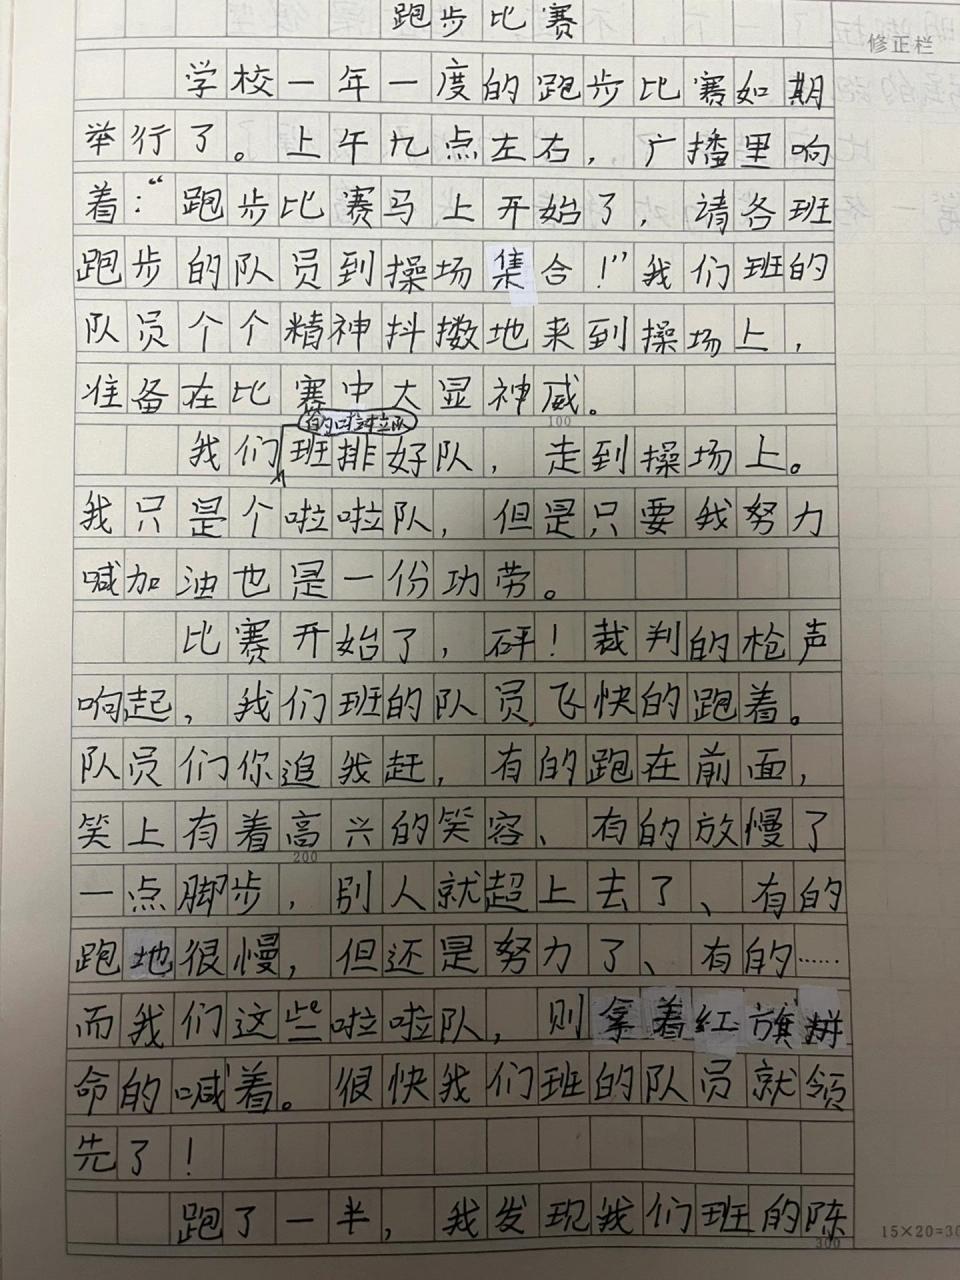 跑步比赛
修正栏
学校一年一度的跑步比赛如期
举行了。上午九点左右，广播里响
着：“跑步比赛马上开始了，请各班
跑步的队员到操场集合！”我们班的
队员个个精神抖擞地来到操场上，
准备在比赛中大显神威。
100
的啦啦队
我们班排好队，走到操场上。
我只是个啦啦队，但是只要我努力
喊加油也是一份功劳。
比赛开始了，砰！裁判的枪声
响起，我们班的队员飞快的跑着。
队员们你追我赶，有的跑在前面，
笑上有着高兴的笑容、有的放慢了
200
一点脚步，别人就超上去了、有的
跑地很慢，但还是努力了、有的……
而我们这些啦啦队，则拿着红旗拼
命的喊着。很快我们班的队员就领
先了！
跑了一半，我发现我们班的陈
300